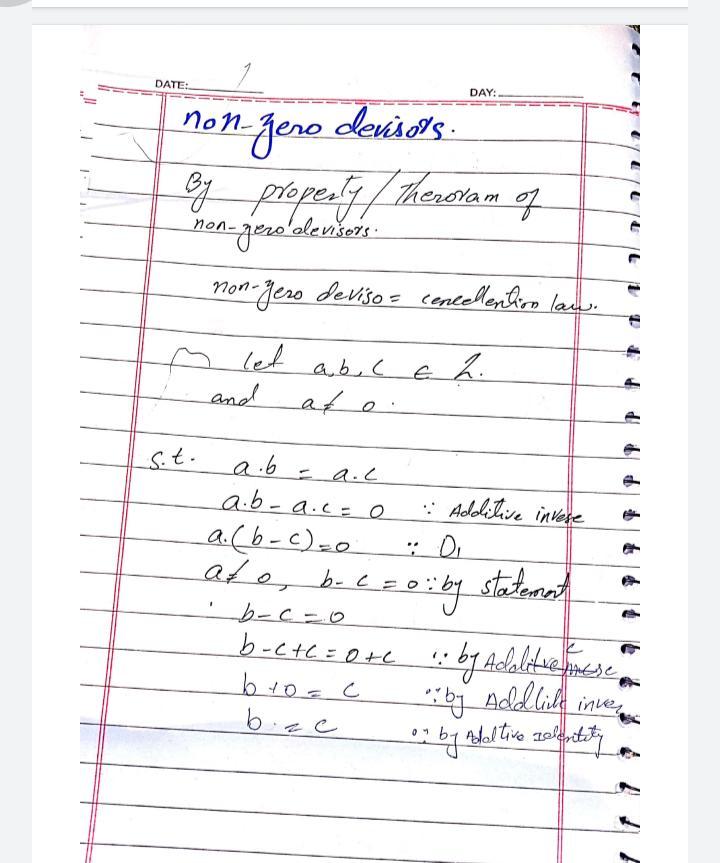 DATE: 1
DAY:
non-zero devisors.
By property / Theroram of
non-zero devisors.
non-zero deviso = cencellention law.
let a, b, c ∈ Z.
and a ≠ 0.
s.t. a.b = a.c
a.b - a.c = 0 ∵ Additive invese
a.(b-c) = 0 ∵ D₁
a ≠ 0, b-c = 0 ∵ by statement
b-c = 0
b-c+c = 0+c ∵ by Additive
b+0 = c ∵ by Additive inver
b = c ∵ by Additive Identity